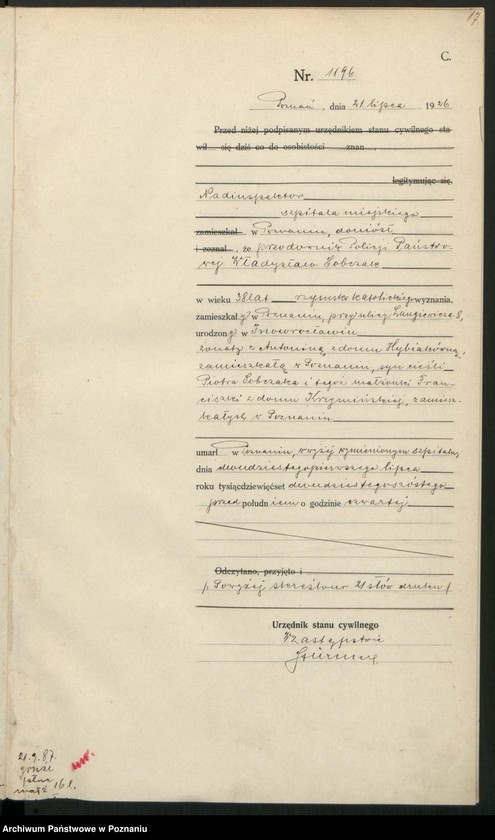 17.
C.
Nr. 1196.
Poznań, dnia 21. lipca 1926
Przed niżej podpisanym urzędnikiem stanu cywilnego sta-
wił się dziś co do osobistości znan
legitymując się.
Nadinspektor
szpitala miejskiego
zamieszkał w Poznaniu, doniósł
i zeznał, że przodownik Policji Państwo-
wej Władysław Sobczak
w wieku 38 lat rzymsko katolickiego wyznania,
zamieszkały w Poznaniu, przy ulicy Langiewicza 8,
urodzony w Inowrocławiu
żonaty z Antoniną z domu
zamieszkałą w Poznaniu, syn cieśli
Piotra Sobczaka i tegoż małżonki Fran-
ciszki z domu Krzymińskiej, zamiesz-
kałych w Poznaniu
umarł w Poznaniu, w wyżej wymienionym szpitalu,
dnia dwudziestego pierwszego lipca
roku tysiącdziewięćset dwudziestego szóstego
przed południem o godzinie czwartej
Odczytano, przyjęto i
/. Powyżej skreślono 21 słów druku /.
Urzędnik stanu cywilnego
W zastępstwie
21.9.87.
16 l.
Archiwum Państwowe w Poznaniu